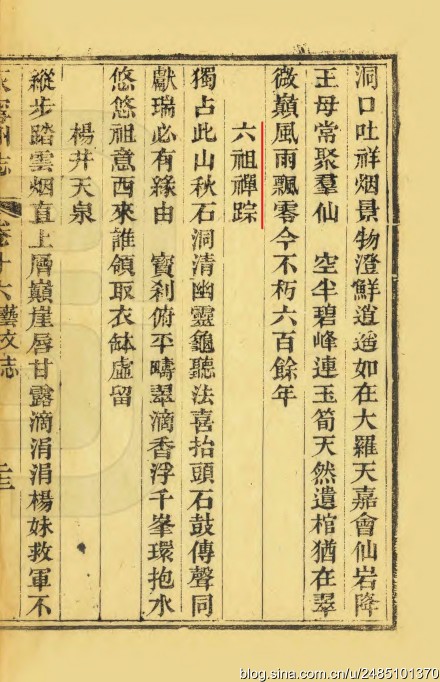 洞口吐祥烟景物澄鮮逍遙如在大羅天嘉會仙岩降
王母常聚羣仙　空半碧峰連玉筍天然遺棺猶在翠
微巔風雨飄零今不朽六百餘年
六祖禪踪
獨占此山秋石洞清幽靈龜聽法喜抬頭石鼓傳聲同
獻瑞必有緣由　寶刹俯平疇翠滴香浮千峯環抱水
悠悠祖意西來誰領取衣鉢虛留
楊井天泉
縱步踏雲烟直上層巔崖唇甘露滴涓涓楊妹救軍不
州志 卷十六藝文志
blog.sina.com.cn/u/2485101370